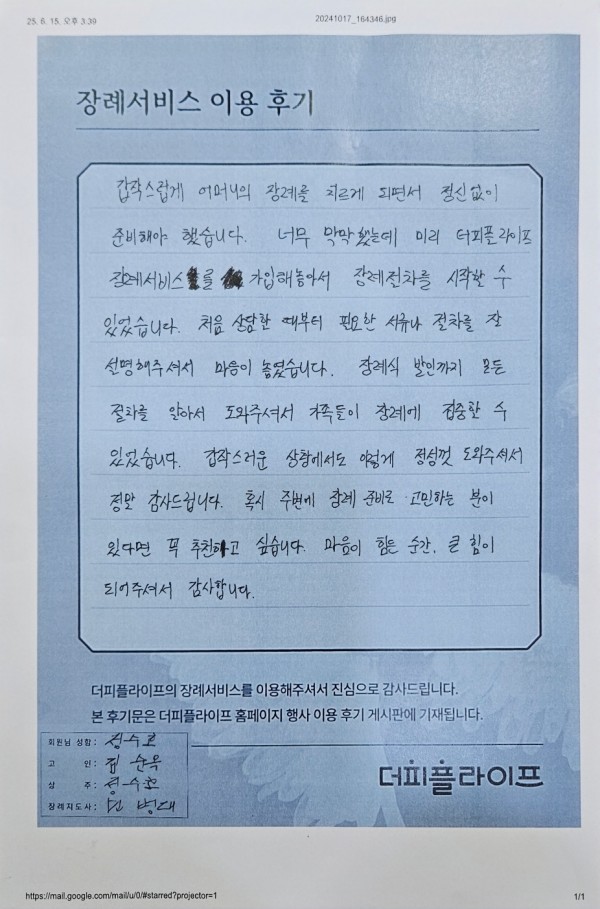 25. 6. 15. 오후 3:39
20241017_164346.jpg
장례서비스 이용 후기
갑작스럽게 어머니의 장례를 치르게 되면서 정신없이
준비해야 했습니다. 너무 막막했는데 미리 더피플라이프
장례서비스를 가입해놓아서 장례절차를 시작할 수
있었습니다. 처음 상담한 때부터 필요한 서류나 절차를 잘
설명해주셔서 마음이 놓였습니다. 장례식 발인까지 모든
절차를 알아서 도와주셔서 가족들이 장례에 집중할 수
있었습니다. 갑작스러운 상황에서도 이렇게 정성껏 도와주셔서
정말 감사드립니다. 혹시 주변에 장례 준비로 고민하는 분이
있다면 꼭 추천하고 싶습니다. 마음이 힘든 순간, 큰 힘이
되어주셔서 감사합니다.
더피플라이프의 장례서비스를 이용해주셔서 진심으로 감사드립니다.
본 후기문은 더피플라이프 홈페이지 행사 이용 후기 게시판에 기재됩니다.
회원님 성함 : 정수호
고 인 : 김순옥
상 주 : 정수호
장례지도사 : 병대
더피플라이프
https://mail.google.com/mail/u/0/#starred?projector=1
1/1